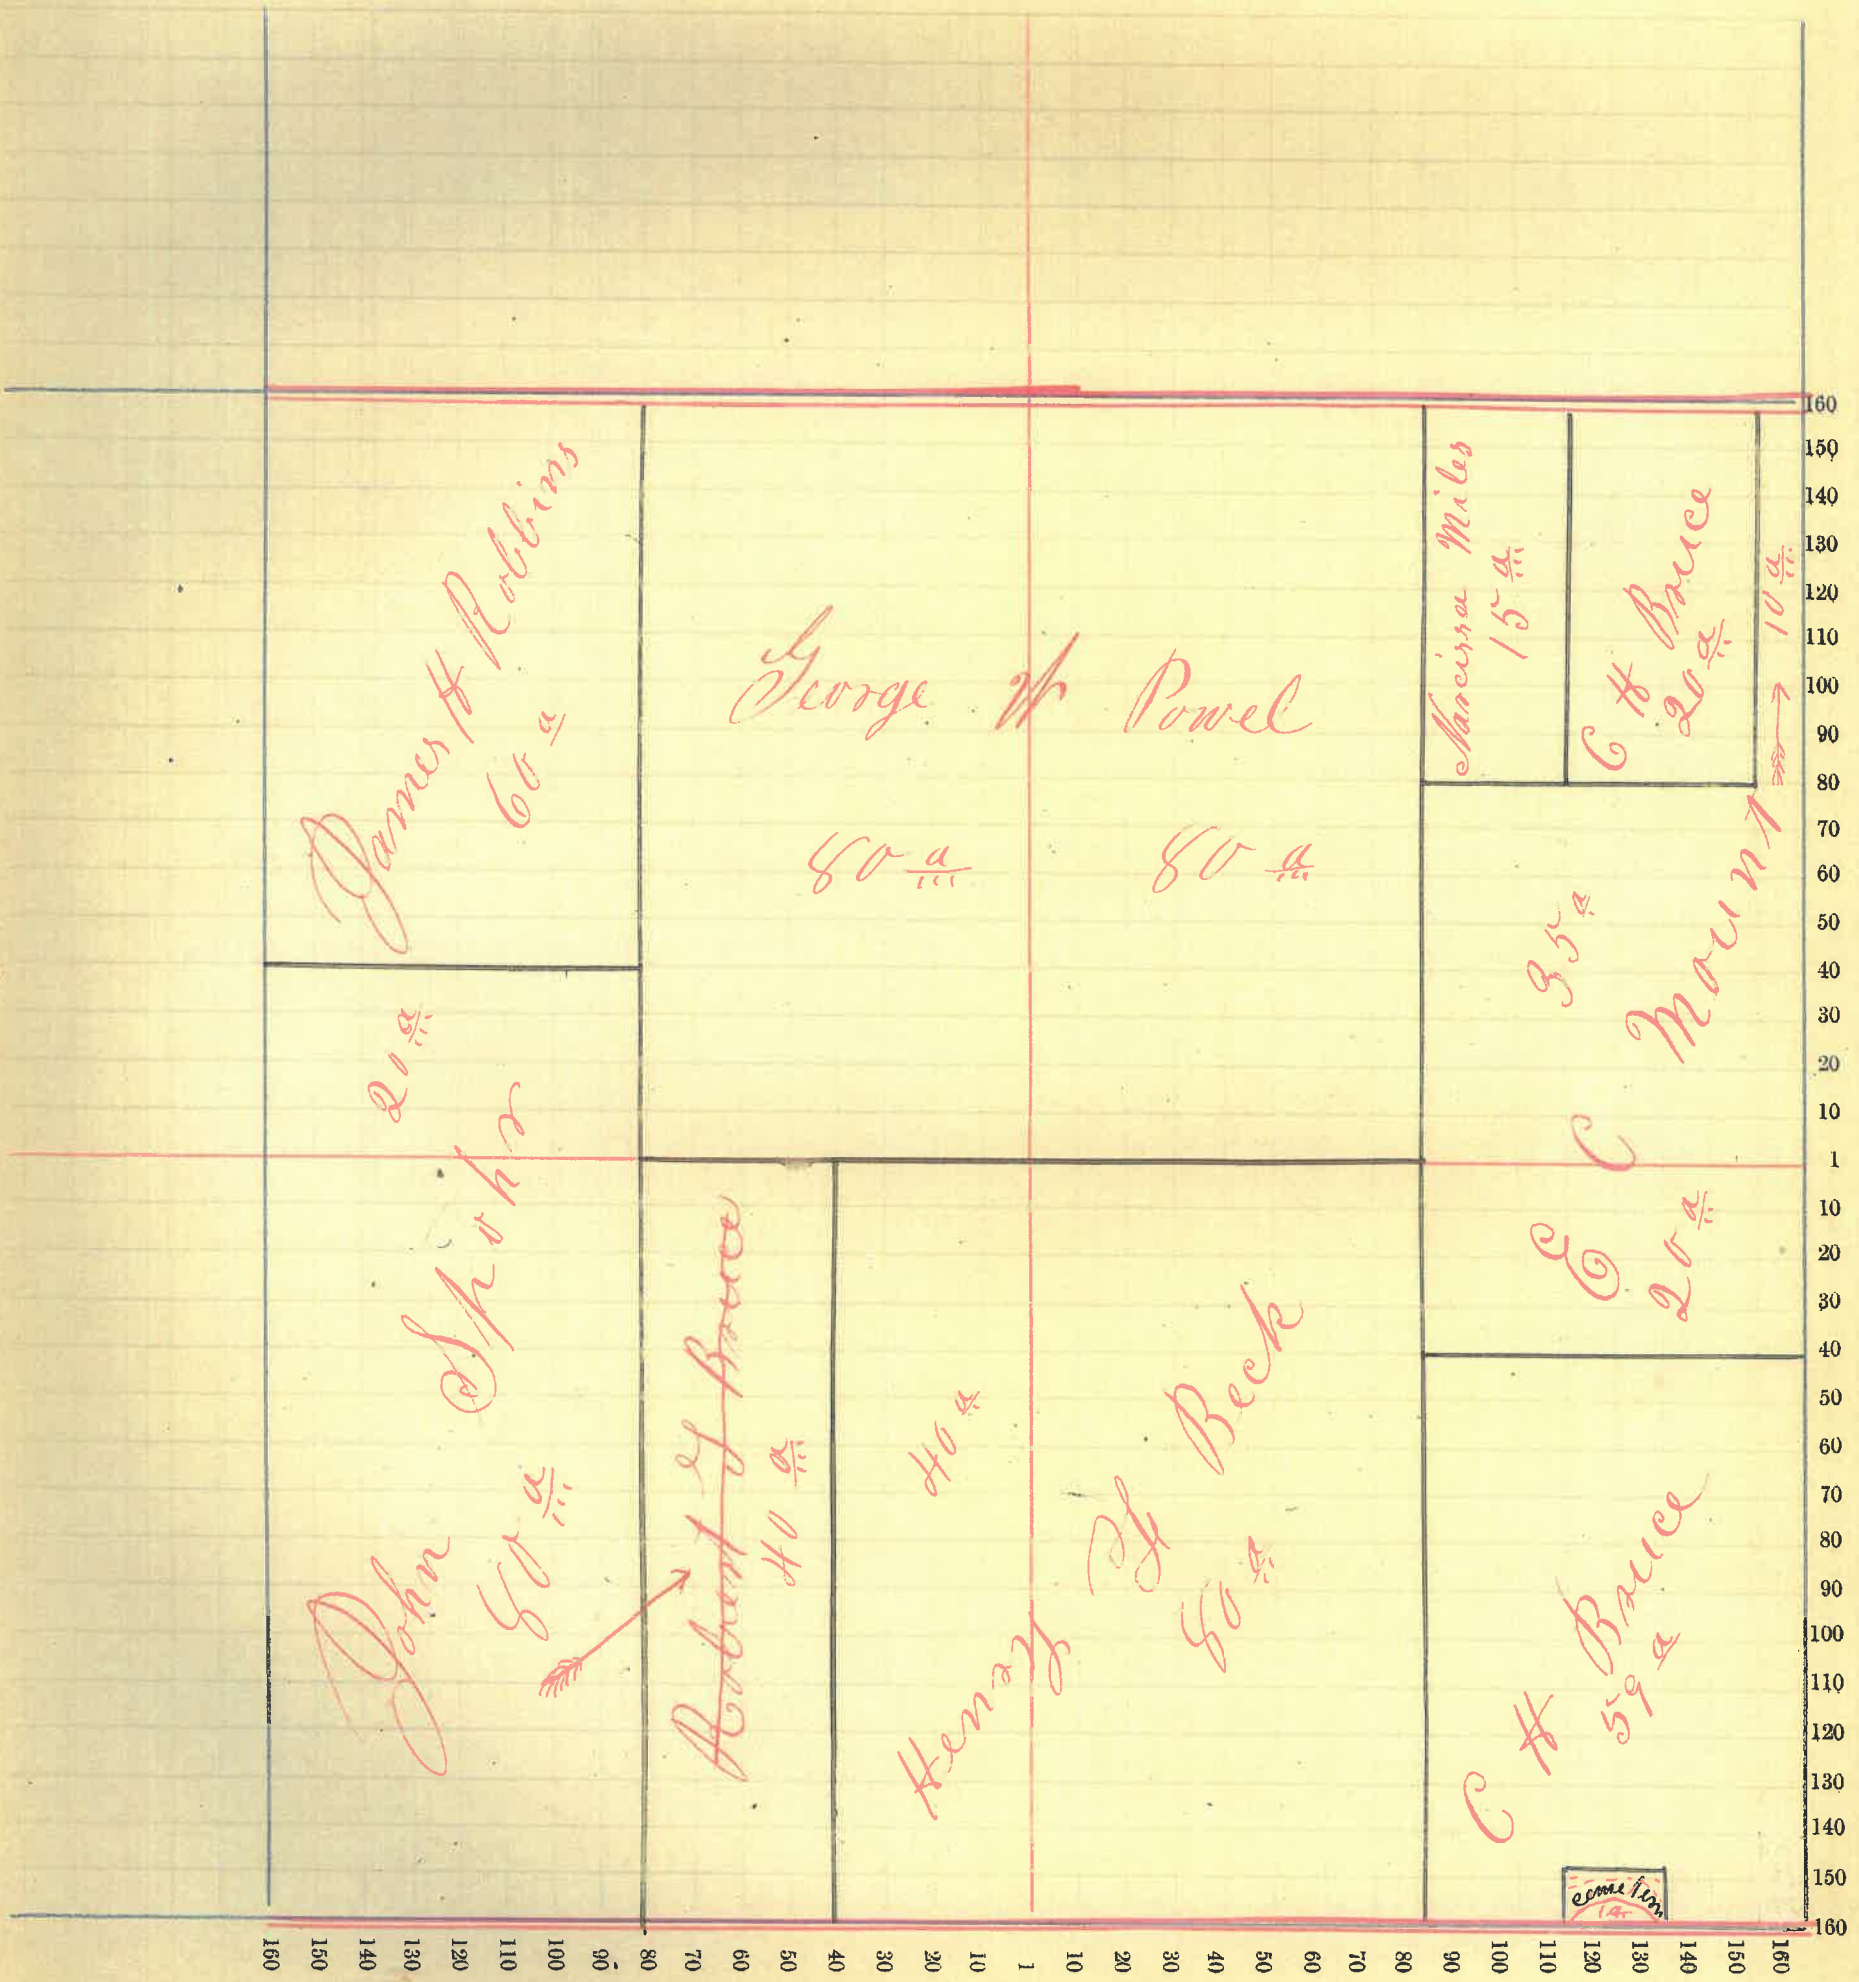 James H Robbins
60 a
George W Powel
80 a
80 a
Narcissa Miles
15 a
C H Bruce
20 a
10 a
20 a
John Spohr
80 a
35 a
E C Mount
20 a
Robert G Bruce
40 a
40 a
Henry H Beck
80 a
C H Bruce
59 a
1 a
160
150
140
130
120
110
100
90
80
70
60
50
40
30
20
10
1
10
20
30
40
50
60
70
80
90
100
110
120
130
140
150
160
160 150 140 130 120 110 100 90 80 70 60 50 40 30 20 10 1 10 20 30 40 50 60 70 80 90 100 110 120 130 140 150 160